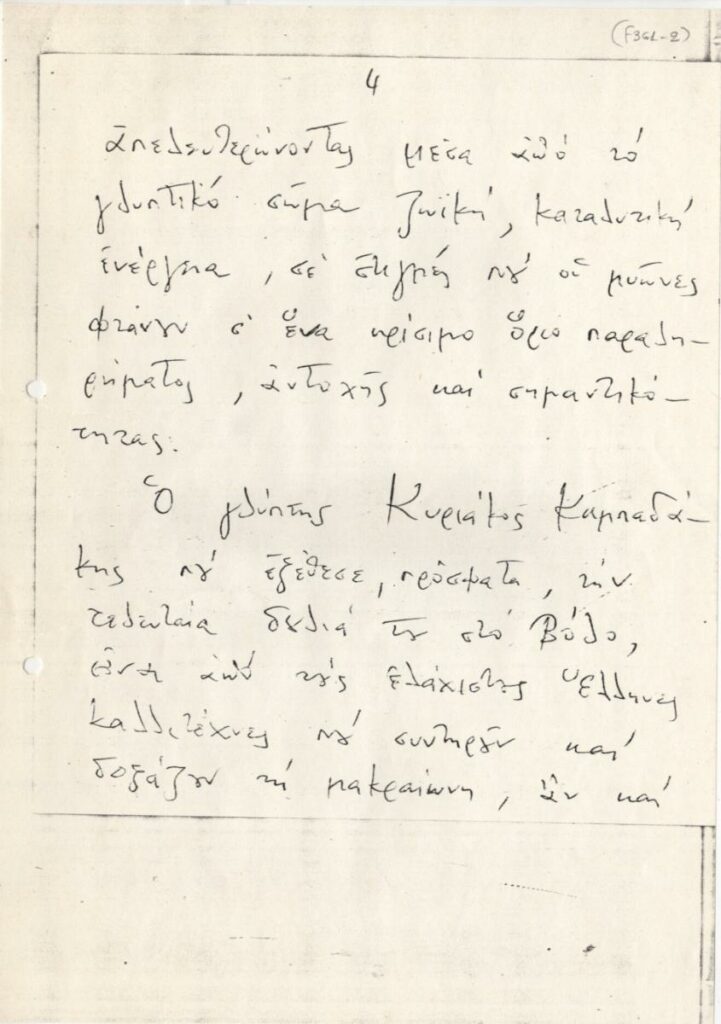 (F361-2)
4
ἀπελευτερώνοντας μέσα ἀπό τό
γλυπτικό σῶμα ζωϊκή, καταλυτική
ἐνέργεια, σέ στιγμές πού οἱ μυῶνες
φτάνουν σ' ἕνα κρίσιμο ὅριο παραλη-
ρήματος, ἀντοχῆς καί σημαντικό-
τητας.
Ὁ γλύπτης Κυριάκος Καμπαδά-
κης πού ἐξέθεσε, πρόσφατα, τήν
τελευταία δουλιά του στό Βόλο,
εἶναι ἀπό τούς ἐλάχιστους Ἕλληνες
καλλιτέχνες πού συντηροῦν καί
δοξάζουν τή μακραίωνη, ἄν καί